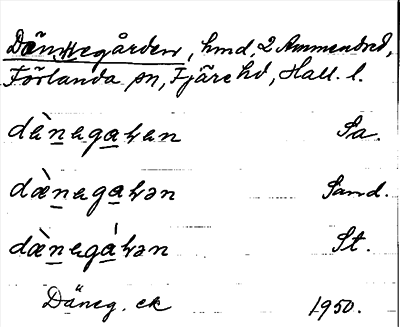 Dännegården, hmd. 2 Ammendred,
Förlanda sn, Fjäre hd, Hall. l.
dæ̀nagaɽən Sa.
dæ̀nagaɽən Sand.
dæ̀nagáɽən St.
Däneg. ek 1950.